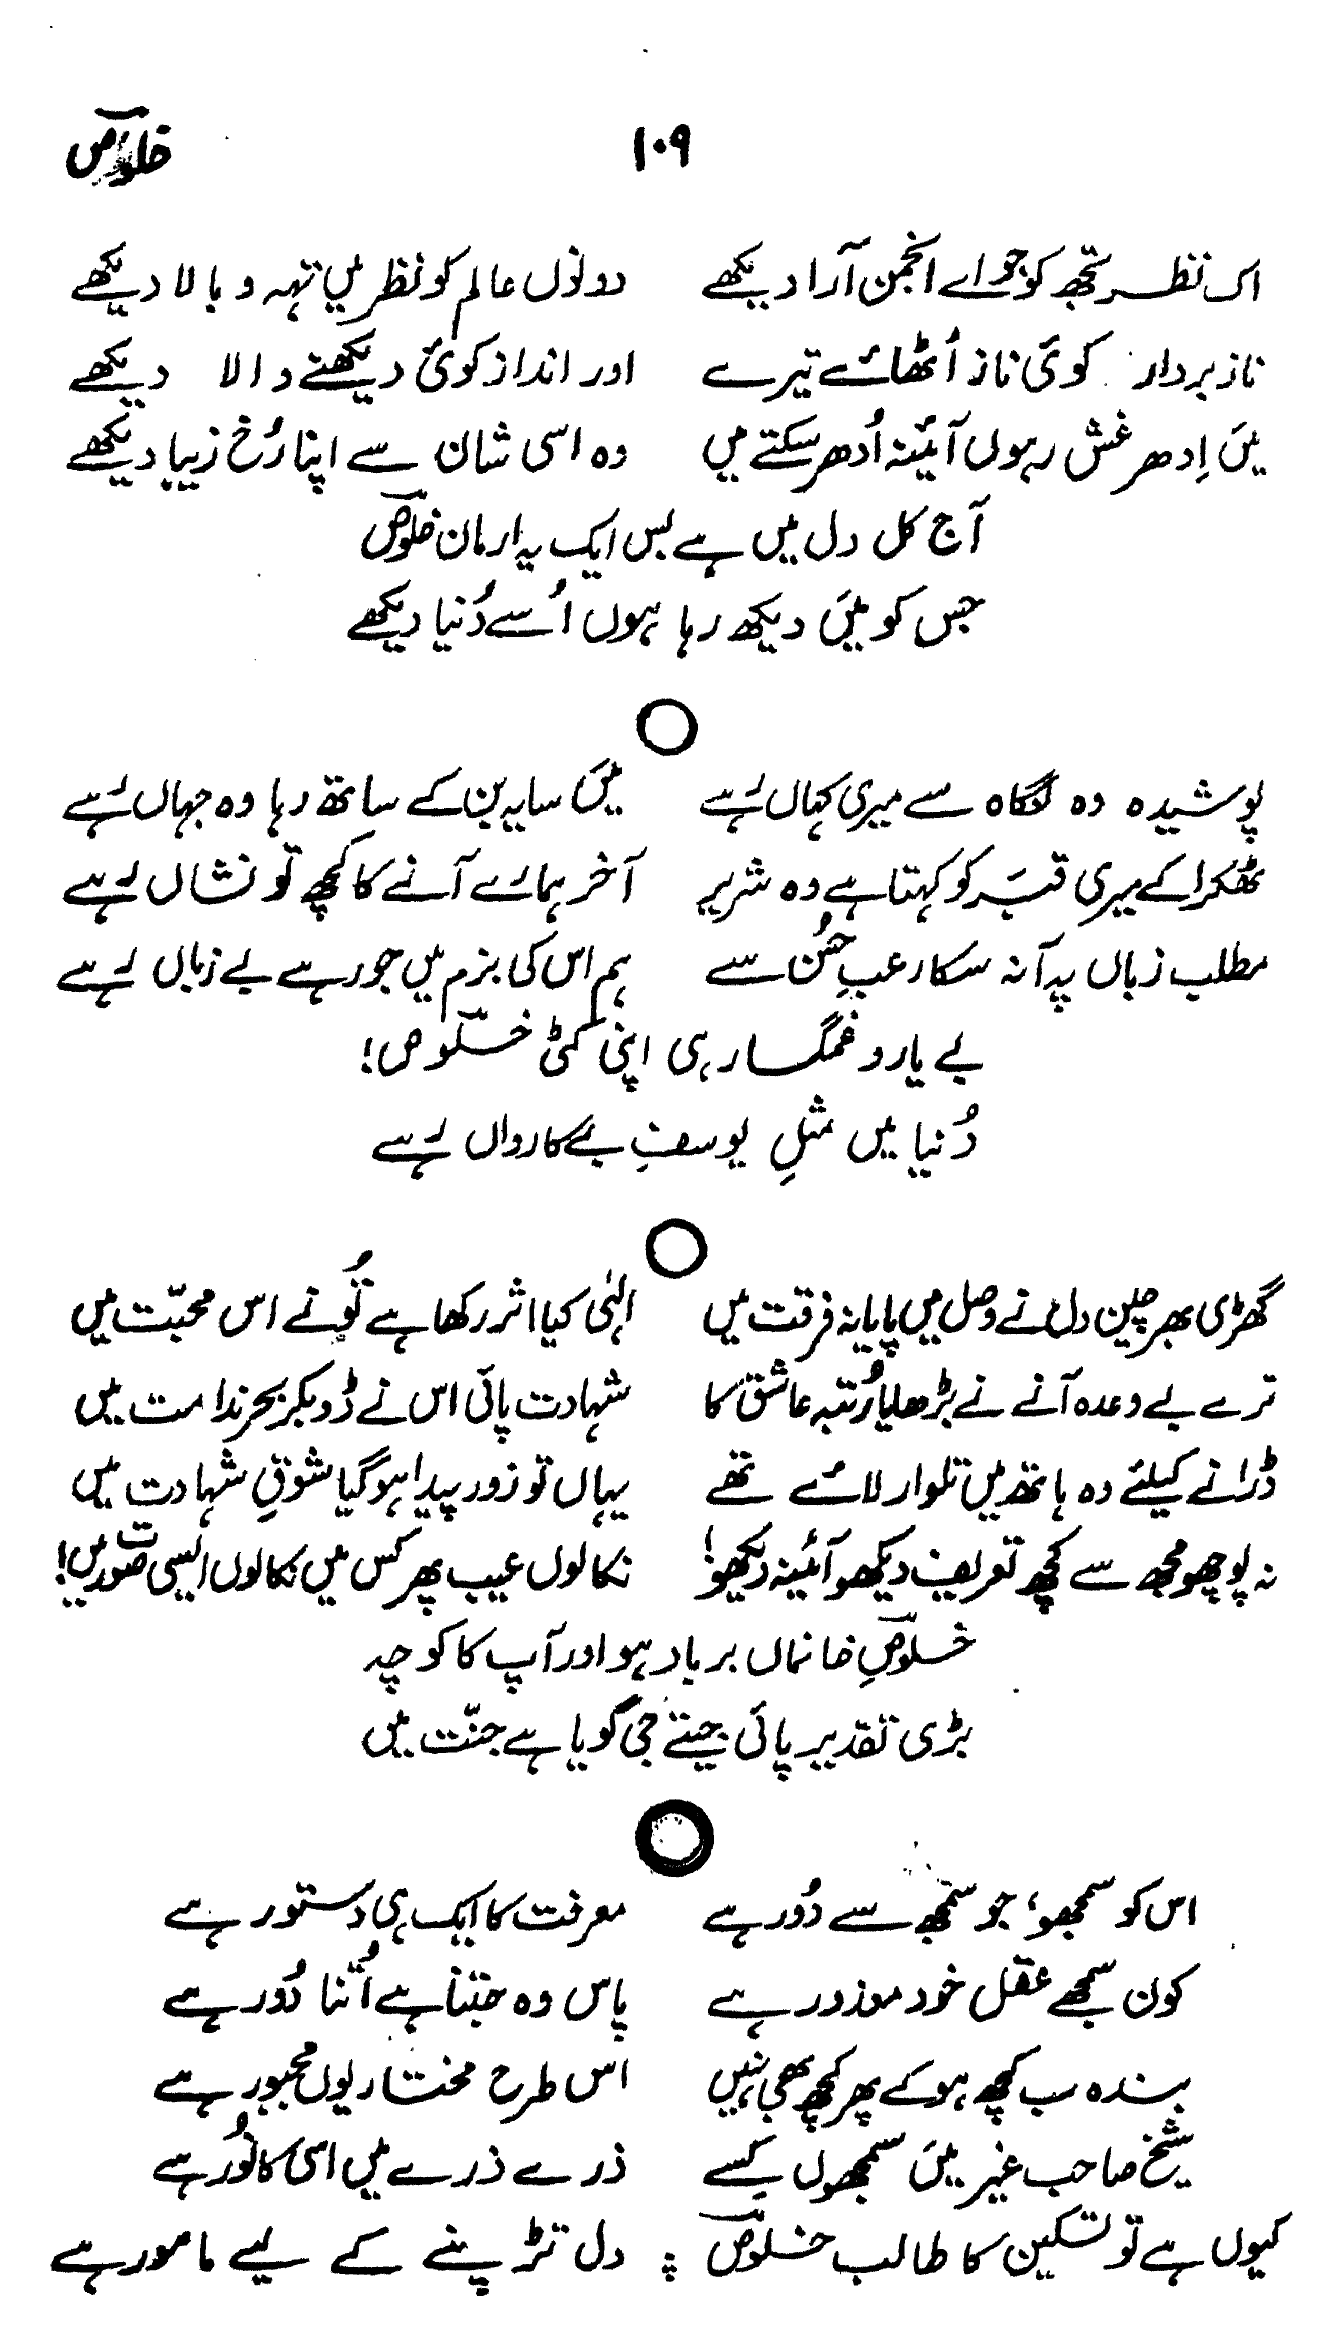 ۱۰۹ خلوصؔ
اک نظر تجھ کو جو اے انجمن آرا دیکھے دونوں عالم کو نظر میں تہہ و بالا دیکھے
ناز بردار کوئی ناز اُٹھائے تیرے اور انداز کوئی دیکھنے والا دیکھے
میَں اِدھر غش رہوں آئینہ اُدھر سکتے میں وہ اسی شان سے اپنا رُخ زیبا دیکھے
آج کل دل میں ہے بس ایک یہ ارمان خلوصؔ
جس کو میَں دیکھ رہا ہوں اُسے دُنیا دیکھے
پوشیدہ وہ نگاہ سے میری کہاں رہے میَں سایہ بن کے ساتھ رہا وہ جہاں رہے
ٹھکرا کے میری قبر کو کہتا ہے وہ شریر آخر ہمارے آنے کا کچھ تو نشاں رہے
مطلب زباں پہ آ نہ سکا رعبِ حُسن سے ہم اس کی بزم میں جو رہے بے زباں رہے
بے یار و غمگسار ہی اپنی کٹی خلوصؔ!
دُنیا میں مثلِ یوسفِ بے کارواں رہے
گھڑی بھر چین دل نے وصل میں پایا نہ فرقت میں الٰہی کیا اثر رکھا ہے تُو نے اس محبّت میں
ترے بے وعدہ آنے نے بڑھایا رُتبہ عاشق کا شہادت پائی اس نے ڈوبکر بحرِ ندامت میں
ڈرانے کیلئے وہ ہاتھ میں تلوار لائے تھے یہاں تو زور پیدا ہوگیا شوقِ شہادت میں
نہ پوچھو مجھ سے کچھ تعریف دیکھو آئینہ دیکھو! نکالوں عیب پھر کس میں نکالوں ایسی صورت میں!
خلوصؔ خانماں برباد ہو اور آپ کا کوچہ
بڑی تقدیر پائی جیتے جی گویا ہے جنّت میں
اس کو سمجھو، جو سمجھ سے دُور ہے معرفت کا ایک ہی دستور ہے
کون سمجھے عقل خود معذور ہے پاس وہ جتنا ہے اُتنا دُور ہے
بندہ سب کچھ ہو کے پھر کچھ بھی نہیں اس طرح مختار یوں مجبور ہے
شیخ صاحب غیر میَں سمجھوں کِسے ذرے ذرے میں اسی کا نُور ہے
کیوں ہے تو تسکین کا طالب خلوصؔ دل تڑپنے کے لیے مامور ہے